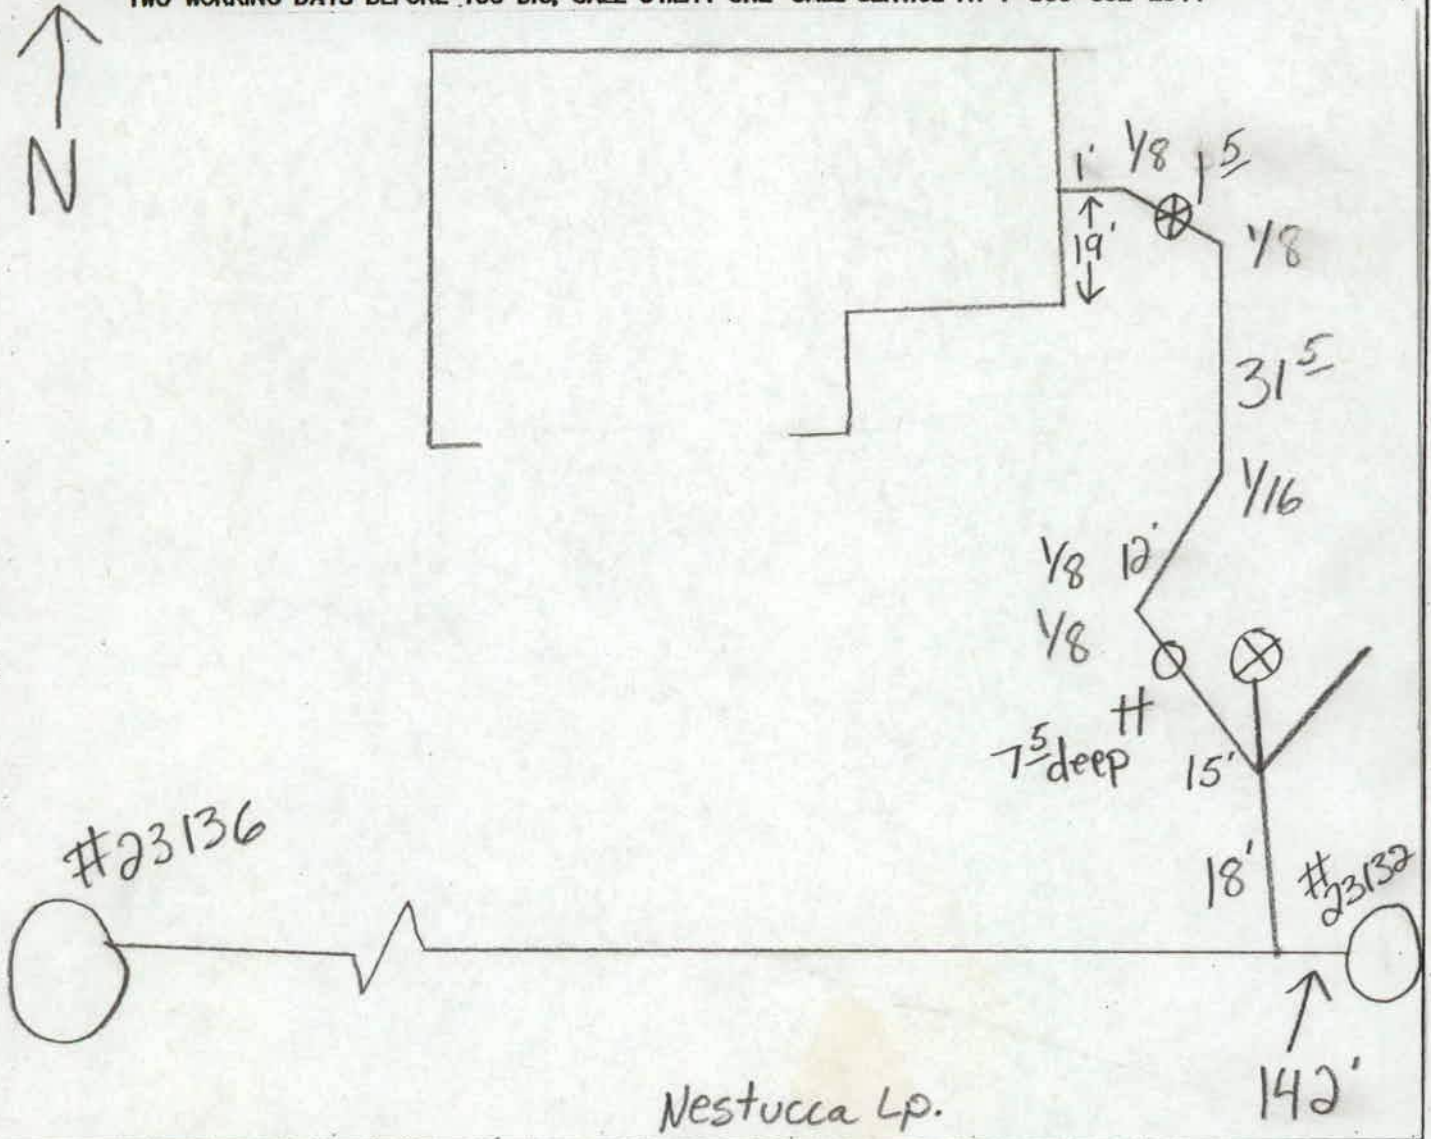 N
1' 1/8 1 5
19'
1/8
31 5
1/16
1/8 12'
1/8
H
7 5 deep
15'
#23136
18'
#23132
142'
Nestucca Lp.